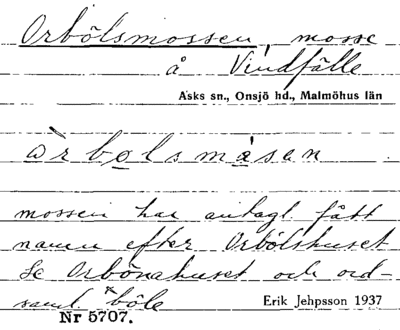 Orbölsmossen, mosse
å Vindfälle
Asks sn., Onsjö hd., Malmöhus län
òrbolsmåsen
mossen har antagl. fått
namn efter Orbölshuset
Se Orbönahuset och ord-
saml. *böle
Erik Jehpsson 1937
Nr 5707.